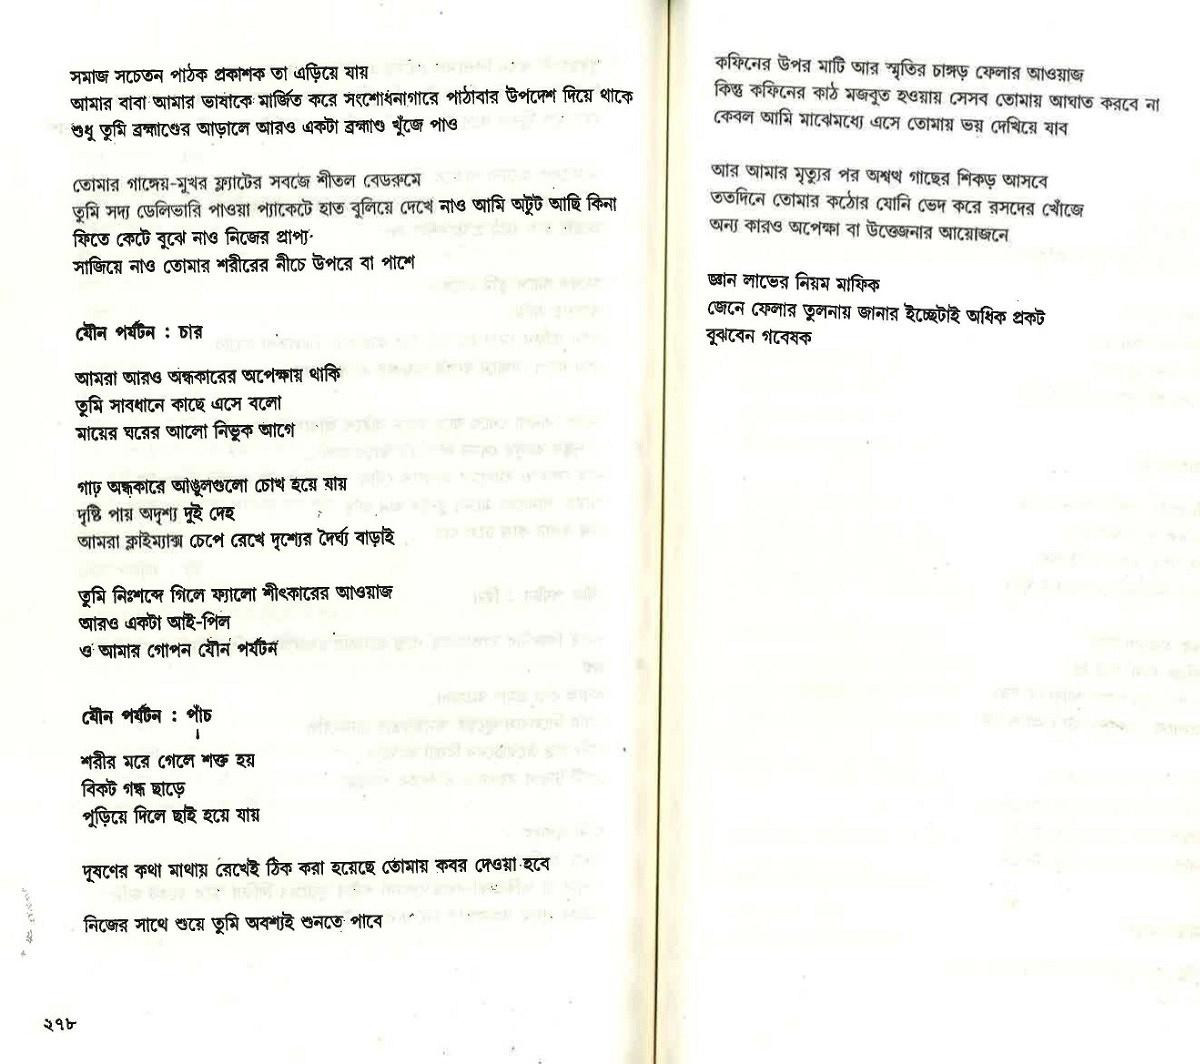 সমাজ সচেতন পাঠক প্রকাশক তা এড়িয়ে যায়
আমার বাবা আমার ভাষাকে মার্জিত করে সংশোধনাগারে পাঠাবার উপদেশ দিয়ে থাকে
শুধু তুমি ব্রহ্মাণ্ডের আড়ালে আরও একটা ব্রহ্মাণ্ড খুঁজে পাও
তোমার গাঙ্গেয়-মুখর ফ্ল্যাটের সবজে শীতল বেডরুমে
তুমি সদ্য ডেলিভারি পাওয়া প্যাকেটে হাত বুলিয়ে দেখে নাও আমি অটুট আছি কিনা
ফিতে কেটে বুঝে নাও নিজের প্রাপ্য
সাজিয়ে নাও তোমার শরীরের নীচে উপরে বা পাশে
যৌন পর্যটন : চার
আমরা আরও অন্ধকারের অপেক্ষায় থাকি
তুমি সাবধানে কাছে এসে বলো
মায়ের ঘরের আলো নিভুক আগে
গাঢ় অন্ধকারে আঙুলগুলো চোখ হয়ে যায়
দৃষ্টি পায় অদৃশ্য দুই দেহ
আমরা ক্লাইম্যাক্স চেপে রেখে দৃশ্যের দৈর্ঘ্য বাড়াই
তুমি নিঃশব্দে গিলে ফ্যালো শীৎকারের আওয়াজ
আরও একটা আই-পিল
ও আমার গোপন যৌন পর্যটন
যৌন পর্যটন : পাঁচ
শরীর মরে গেলে শক্ত হয়
বিকট গন্ধ ছাড়ে
পুড়িয়ে দিলে ছাই হয়ে যায়
দূষণের কথা মাথায় রেখেই ঠিক করা হয়েছে তোমায় কবর দেওয়া হবে
নিজের সাথে শুয়ে তুমি অবশ্যই শুনতে পাবে
২৭৮
কফিনের উপর মাটি আর স্মৃতির চাঙ্গড় ফেলার আওয়াজ
কিন্তু কফিনের কাঠ মজবুত হওয়ায় সেসব তোমায় আঘাত করবে না
কেবল আমি মাঝেমধ্যে এসে তোমায় ভয় দেখিয়ে যাব
আর আমার মৃত্যুর পর অশ্বত্থ গাছের শিকড় আসবে
ততদিনে তোমার কঠোর যোনি ভেদ করে রসদের খোঁজে
অন্য কারও অপেক্ষা বা উত্তেজনার আয়োজনে
জ্ঞান লাভের নিয়ম মাফিক
জেনে ফেলার তুলনায় জানার ইচ্ছেটাই অধিক প্রকট
বুঝবেন গবেষক